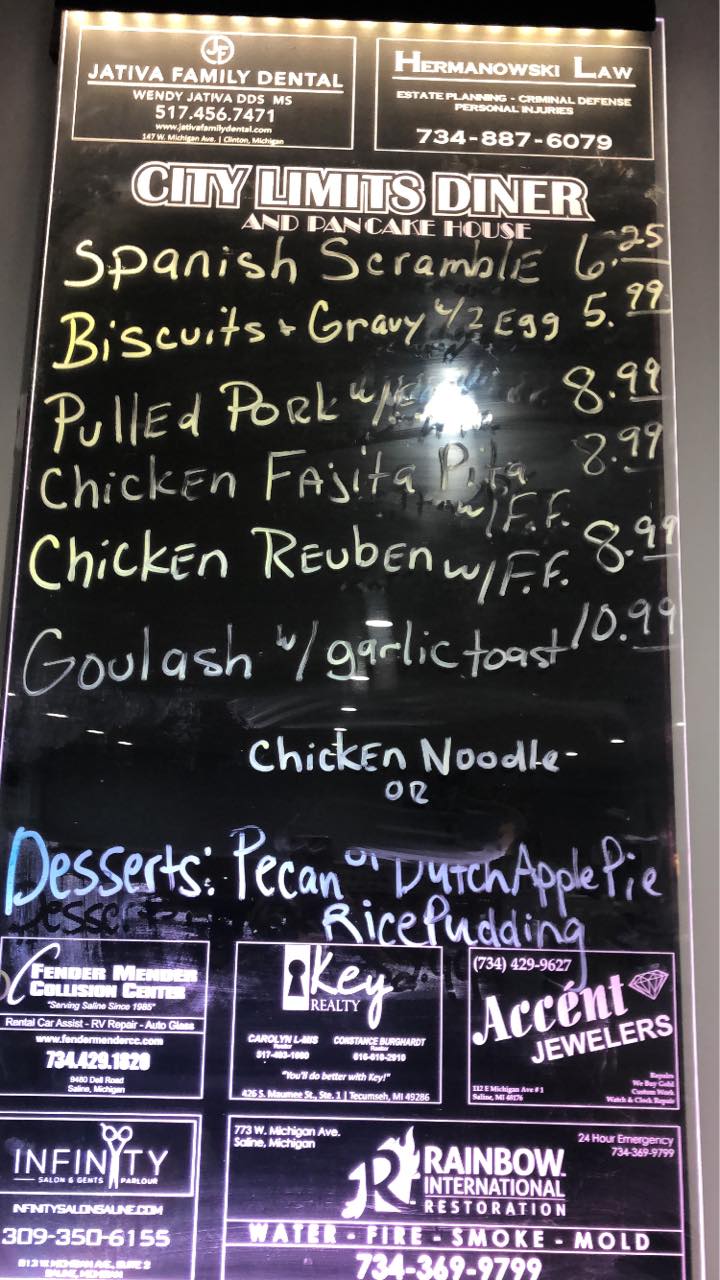 JF
JATIVA FAMILY DENTAL
WENDY JATIVA DDS MS
517.456.7471
www.jativafamilydental.com
147 W. Michigan Ave. | Clinton, Michigan
HERMANOWSKI LAW
ESTATE PLANNING - CRIMINAL DEFENSE
PERSONAL INJURIES
734-887-6079
CITY LIMITS DINER
AND PANCAKE HOUSE
Spanish Scramble 6.25
Biscuits + Gravy w/2 Egg 5.99
Pulled Pork w/ 8.99
Chicken Fajita Pita 8.99
w/F.F.
Chicken Reuben w/F.F. 8.99
Goulash w/ garlic toast 10.99
Chicken Noodle-
OR
Desserts: Pecan or Dutch Apple Pie
Rice Pudding
FENDER MENDER
COLLISION CENTER
"Serving Saline Since 1985"
Rental Car Assist - RV Repair - Auto Glass
www.fendermendercc.com
734.429.1820
9480 Dell Road
Saline, Michigan
Key
REALTY
CAROLYN
Realtor
517-403-1090
CONSTANCE BURGHARDT
Realtor
616-610-2910
"You'll do better with Key!"
426 S. Maumee St., Ste. 1 | Tecumseh, MI 49286
(734) 429-9627
Accént
JEWELERS
112 E Michigan Ave # 1
Saline, MI 48176
Repairs
We Buy Gold
Custom Work
Watch & Clock Repair
INFINITY
SALON & GENTS PARLOUR
INFINITYSALONSALINE.COM
309-350-6155
SALINE, MICHIGAN
773 W. Michigan Ave.
Saline, Michigan
24 Hour Emergency
734-369-9799
R
RAINBOW
INTERNATIONAL
RESTORATION
WATER - FIRE - SMOKE - MOLD
734-369-9799